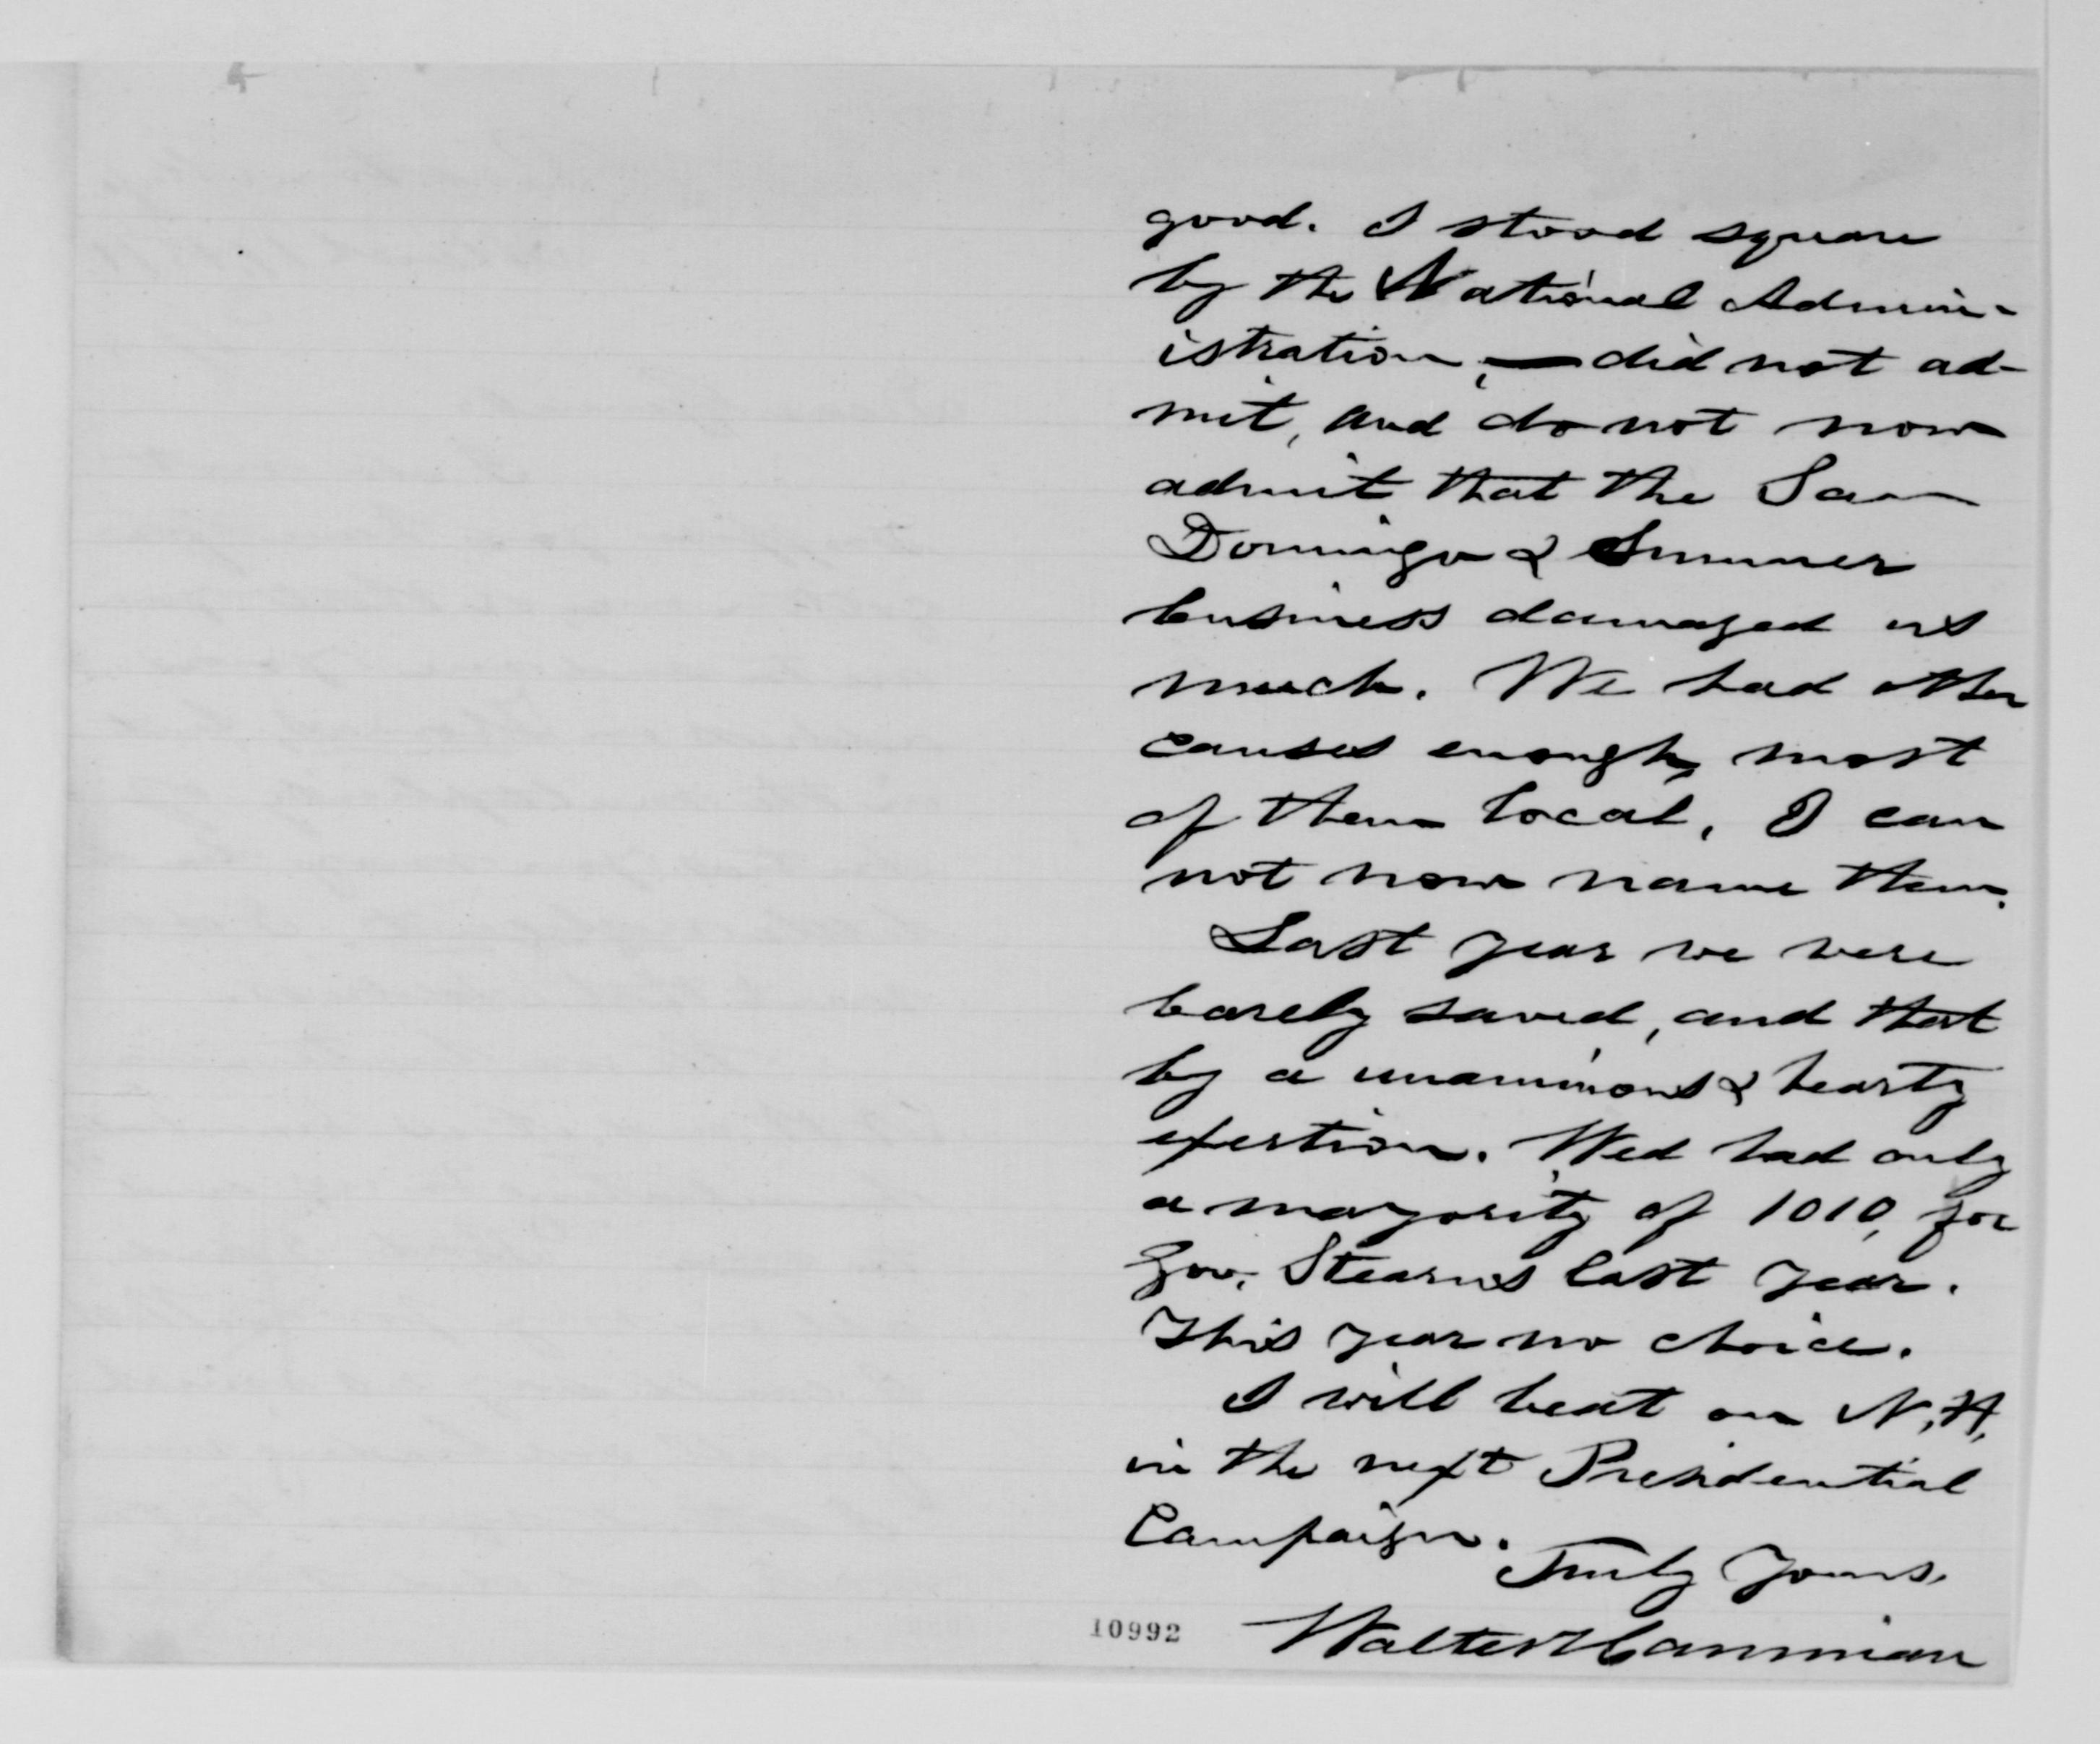 good. I stood square
by the National Admin-
istration, — did not ad-
mit, and do not now
admit that the San
Domingo & Sumner
business damaged us
much. We had other
causes enough, most
of them local. I can
not now name them.
Last year we were
barely saved, and that
by a unanimous & hearty
exertion. Wed had only
a majority of 1010, for
Gov. Stearns last year.
This year no choice.
I will beat on N.H.
in the next Presidential
Campaign.
Truly Yours,
Walter Harriman
10992